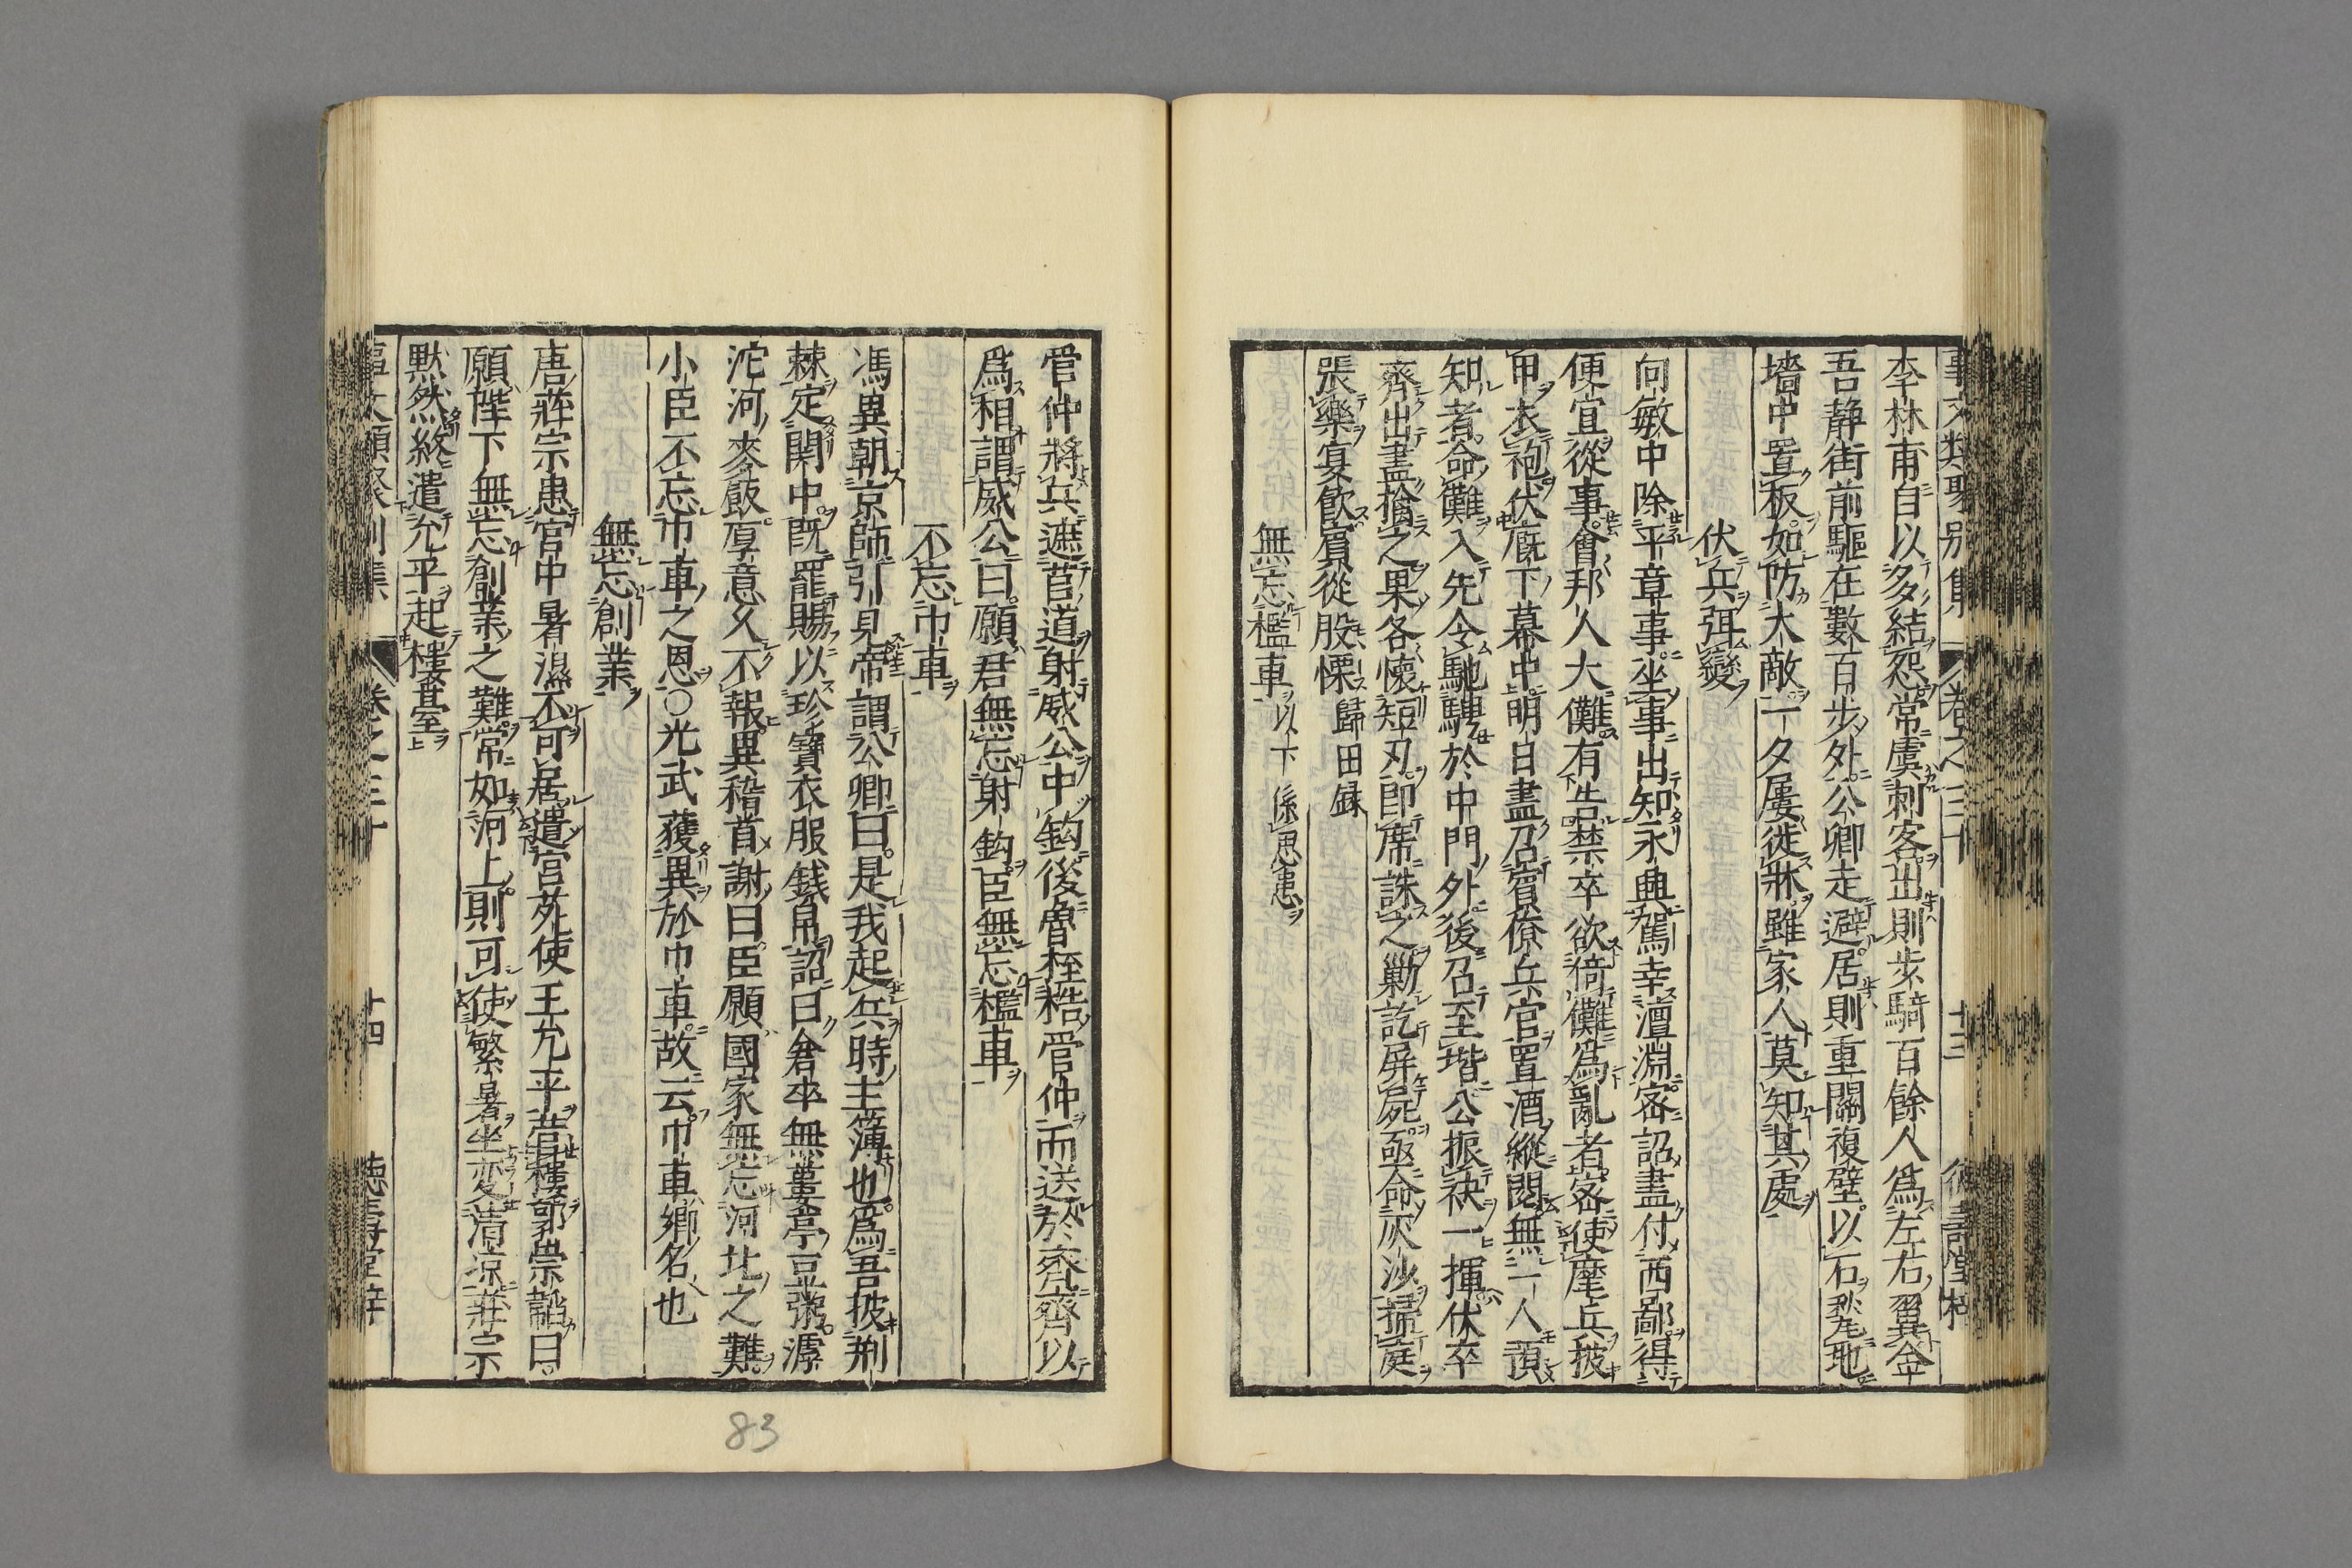 李林甫自以多結怨常虞刺客出則步騎百餘人爲左右翼金
吾静街前驅在數百步外公卿走避居則重關複壁以石甃地
墻中置板如防大敵一夕屢徙牀雖家人莫知其處
伏兵弭變
向敏中除平章事坐事出知永興駕幸澶淵密詔盡付西鄙得
便宜從事會邦人大儺有告禁卒欲倚儺爲亂者密使麾兵披
甲衣袍伏廡下幕中明日盡召賓僚兵官置酒縱閱無一人預
知者命儺入先令馳騁於中門外後召至堦公振袂一揮伏卒
齊出盡擒之果各懷短刃即席誅之勦訖屏屍亟命灰沙掃庭
張樂宴飲賓從股慄歸田録
無忘檻車以下係思患
管仲將兵遮莒道射威公中鈎後魯桎梏管仲而送於齊齊以
爲相謂威公曰願君無忘射鈎臣無忘檻車
不忘巾車
馮異朝京師引見帝謂公卿曰是我起兵時主薄也爲吾披荆
棘定関中既罷賜以珍寶衣服錢帛詔曰倉卒無蔞亭豆粥滹
沱河麥飯厚意久不報異稽首謝曰臣願國家無忘河北之難
小臣不忘巾車之恩○光武獲異於巾車故云巾車鄉名也
無忘創業
唐莊宗患宮中暑濕不可居遣宮苑使王允平營樓郭崇韜曰
願陛下無忘創業之難常如河上則可使繁暑坐变清凉莊宗
黙然終遣允平起樓臺
事文類聚別集
卷之三十
十三
十四